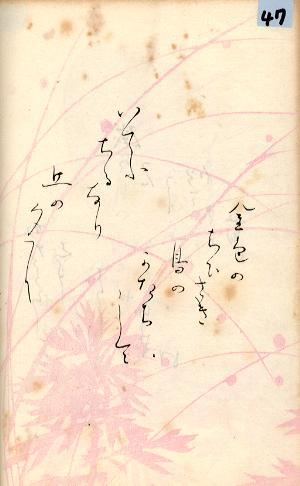 47
金色の
ちひさき
鳥の
かたち
して
いてふ
ちるなり
丘の夕日に